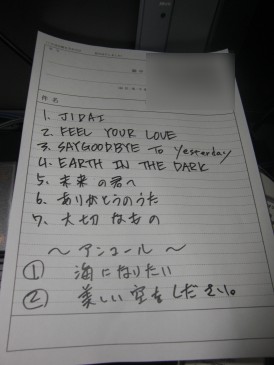 件名
1. JIDAI
2. FEEL YOUR LOVE
3. SAYGOODBYE TO yesterday
4. EARTH IN THE DARK
5. 未来の君へ
6. ありがとうのうた
7. 大切なもの
～アンコール～
① 海になりたい
② 美しい空をください。